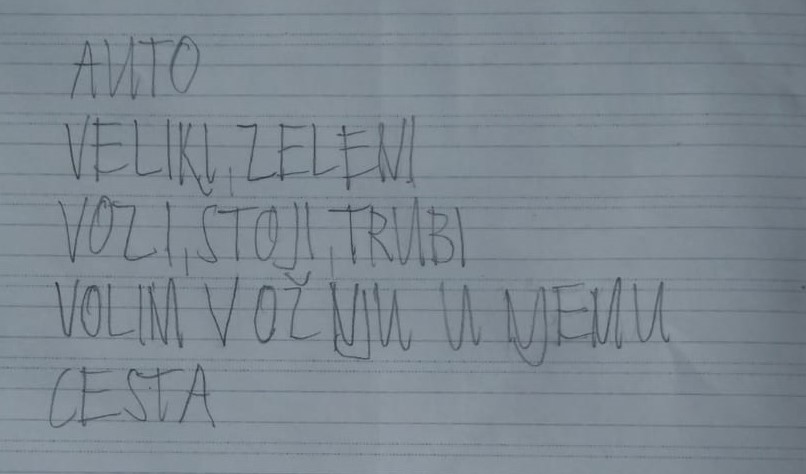 AUTO
VELIKI, ZELENI
VOZI, STOJI, TRUBI
VOLIM VOŽNJU U NJEMU
CESTA